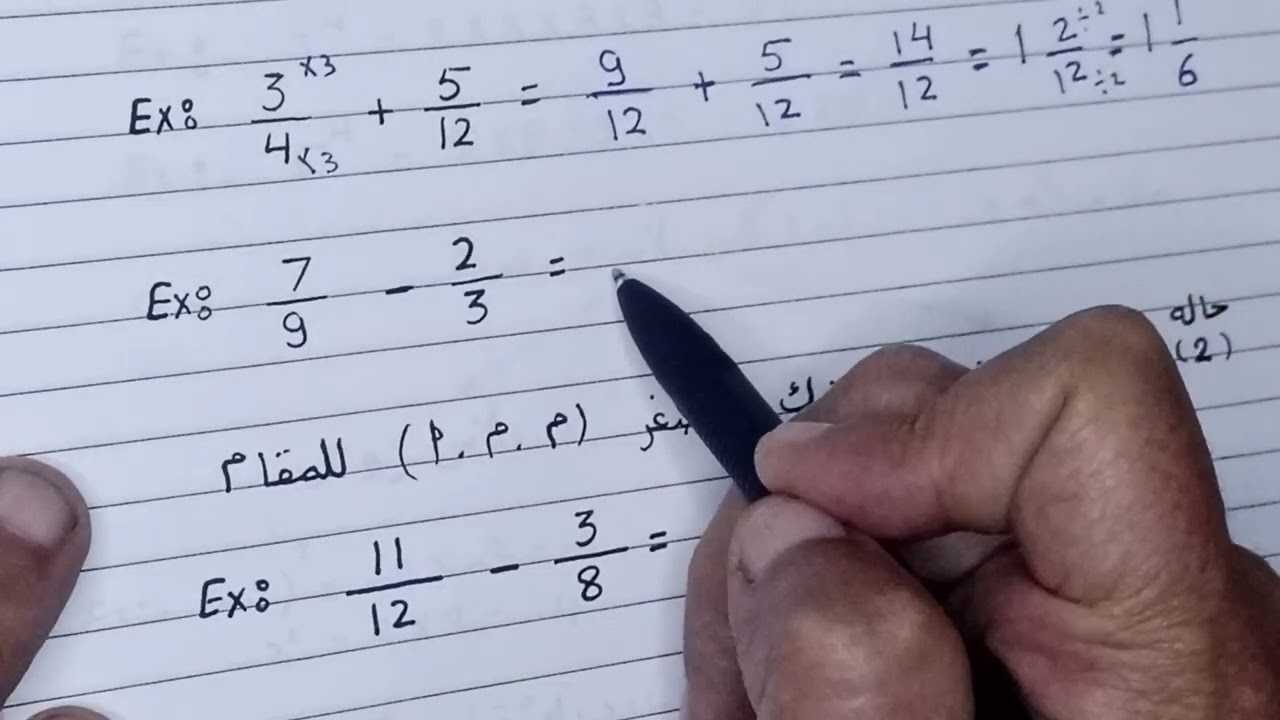 Ex: 3×3/4×3 + 5/12 = 9/12 + 5/12 = 14/12 = 1 2÷2/12÷2 = 1 1/6
Ex: 7/9 - 2/3 =
حاله (2)
(م.م.أ) للمقام
Ex: 11/12 - 3/8 =